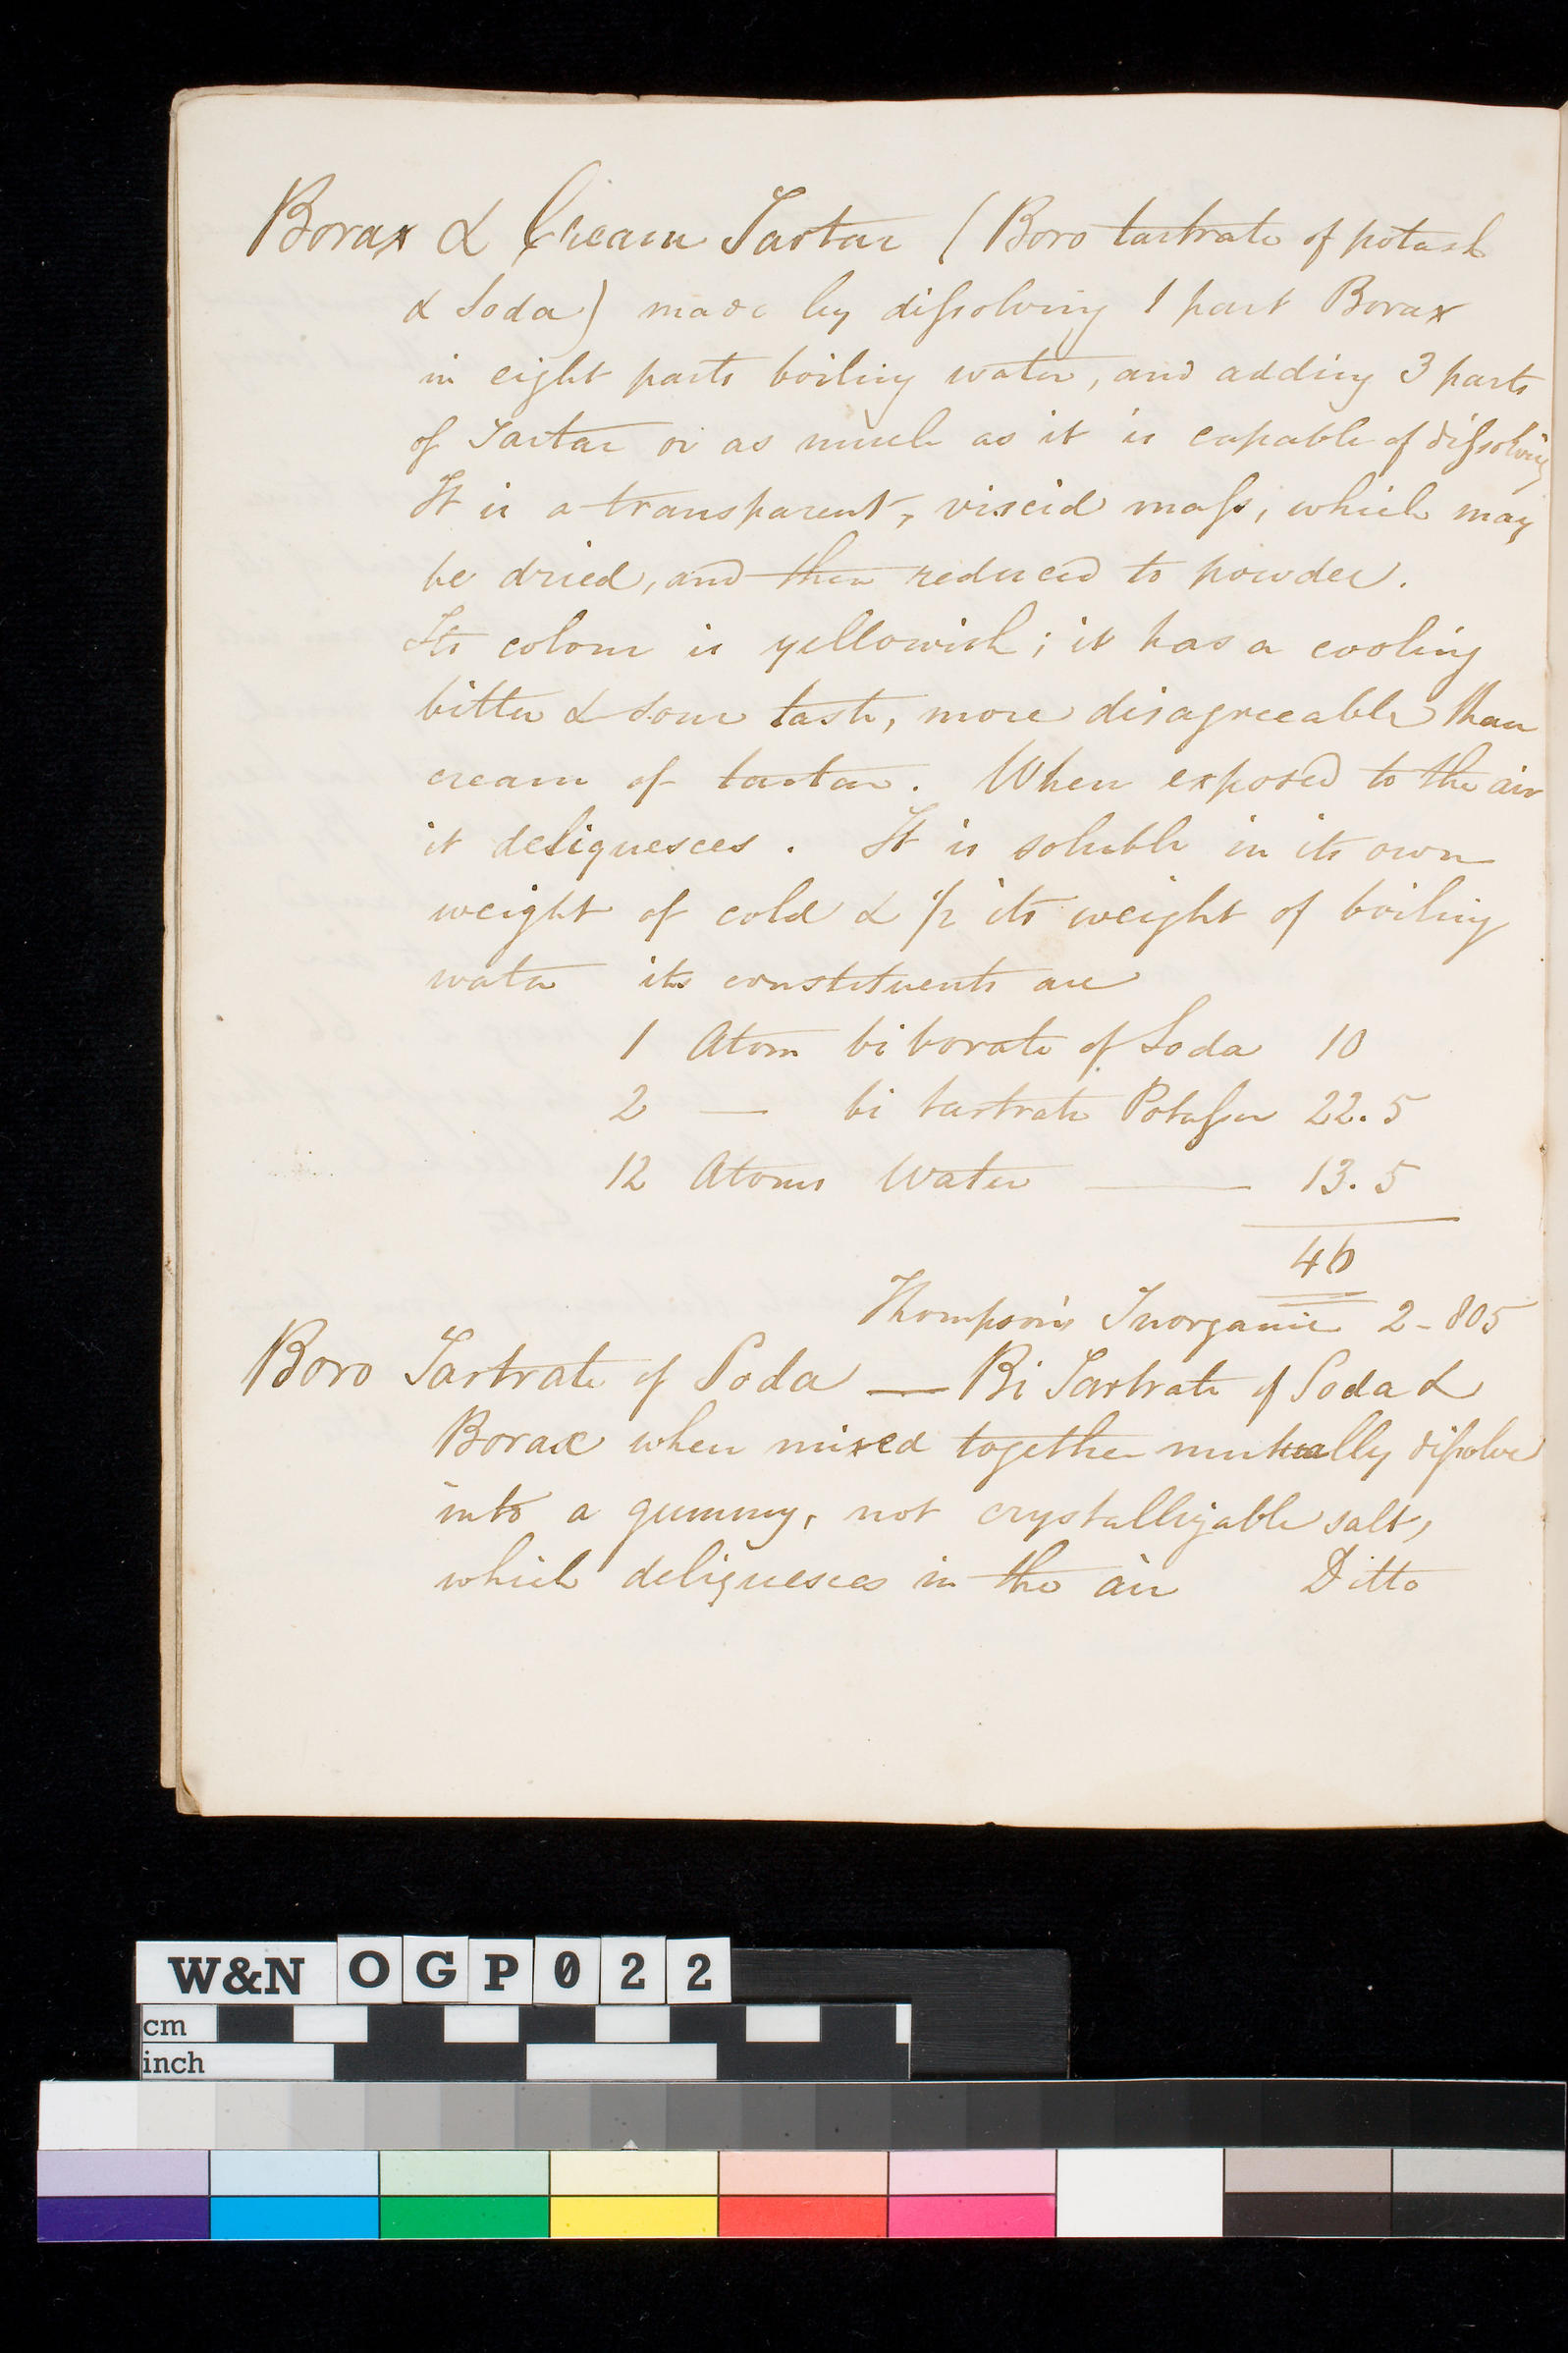 Borax & Cream Tartar (Boro tartrate of potash
& Soda) made by dissolving 1 part Borax
in eight parts boiling water, and adding 3 parts
of Tartar or as much as it is capable of dissolving
It is a transparent, viscid mass, which may
be dried, and then reduced to powder.
Its colour is yellowish; it has a cooling
bitter & sour taste, more disagreeable than
cream of tartar. When exposed to the air
it deliquesces. It is soluble in its own
weight of cold & 1/2 its weight of boiling
water its constituents are
1 Atom bi borate of Soda 10
2 — bi tartrate Potassa 22.5
12 Atoms Water — 13.5
46
Thompson's Inorganic 2-805
Boro Tartrate of Soda — Bi Tartrate of Soda &
Borax when mixed together mutually dissolve
into a gummy, not crystallizable salt,
which deliquesces in the air Ditto
W&N OGP022
cm
inch